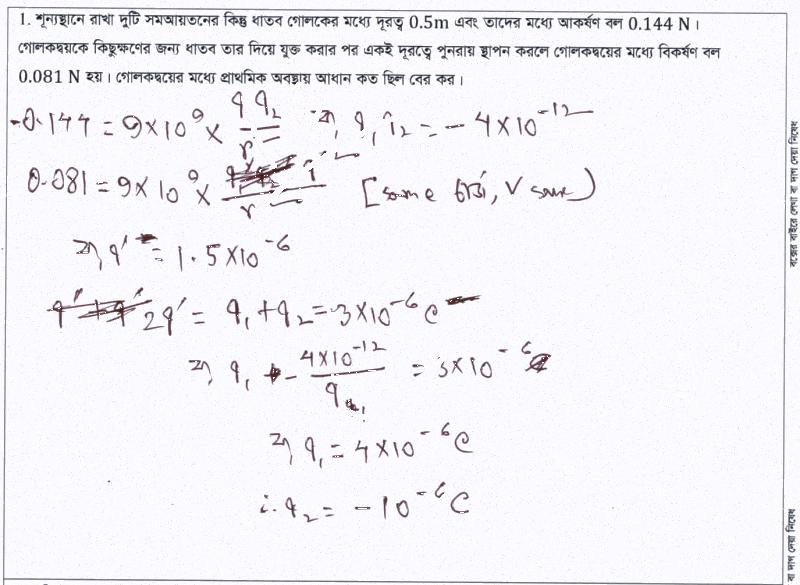 1. শূন্যস্থানে রাখা দুটি সমআয়তনের কিন্তু ধাতব গোলকের মধ্যে দূরত্ব 0.5m এবং তাদের মধ্যে আকর্ষণ বল 0.144 N।
গোলকদ্বয়কে কিছুক্ষণের জন্য ধাতব তার দিয়ে যুক্ত করার পর একই দূরত্বে পুনরায় স্থাপন করলে গোলকদ্বয়ের মধ্যে বিকর্ষণ বল
0.081 N হয়। গোলকদ্বয়ের মধ্যে প্রাথমিক অবস্থায় আধান কত ছিল বের কর।
-0.144 = 9×10⁹ × q q₂ / r² ⇒ q₁q₂ = -4×10⁻¹²
0.081 = 9×10⁹ × q'² / r² [same চার্জ, V same)
⇒ q' = 1.5×10⁻⁶
2q' = q₁+q₂ = 3×10⁻⁶ C
⇒ q₁ - 4×10⁻¹² / q₁ = 3×10⁻⁶
⇒ q₁ = 4×10⁻⁶ C
∴ q₂ = -10⁻⁶ C
বক্সের বাইরে লেখা বা দাগ দেয়া নিষেধ
বা দাগ দেয়া নিষেধ